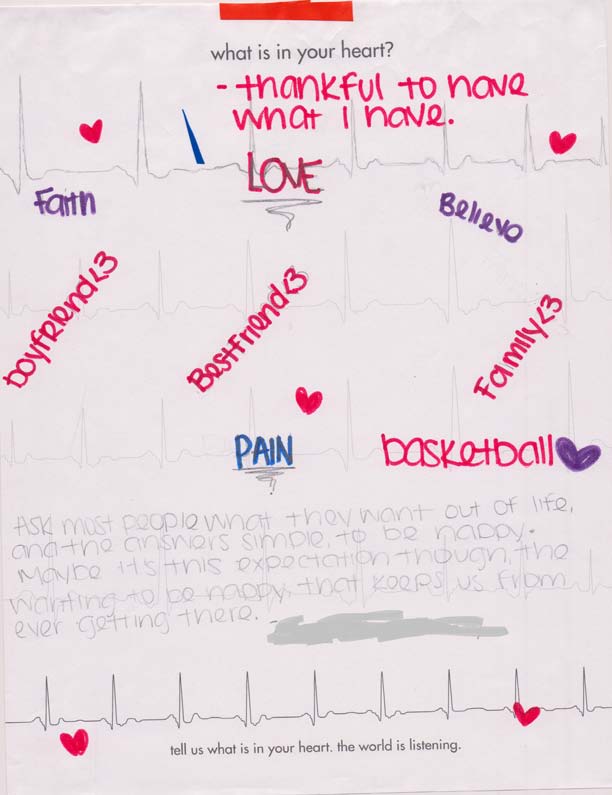 what is in your heart?
- thankful to have
what I have.
LOVE
Faith
Believe
boyfriend<3
Bestfriend<3
Family<3
PAIN
basketball
Ask most people what they want out of life,
and the answers simple, to be happy.
Maybe its this expectation though, the
wanting to be happy, that keeps us from
ever getting there. -
tell us what is in your heart. the world is listening.